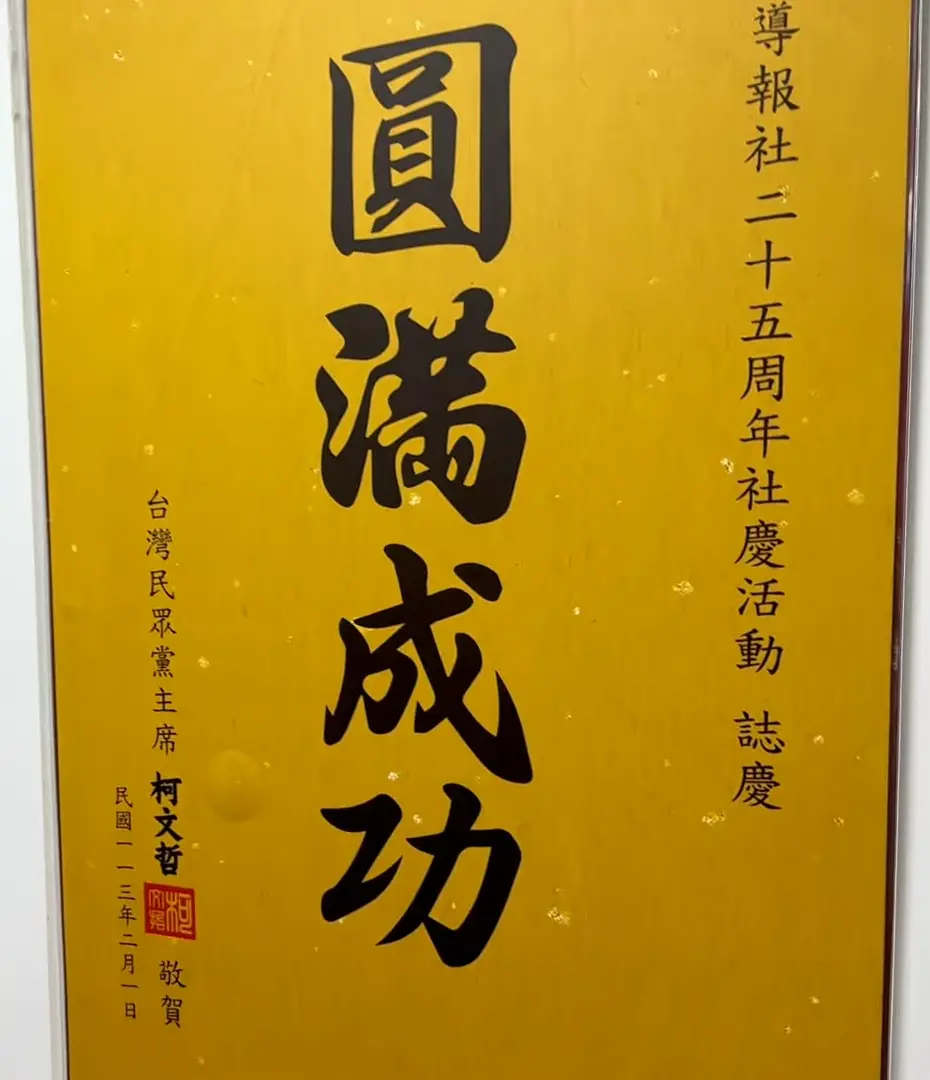 導報社二十五周年社慶活動 誌慶
圓滿成功
台灣民眾黨主席 柯文哲 敬賀
柯文哲
民國一一三年二月一日